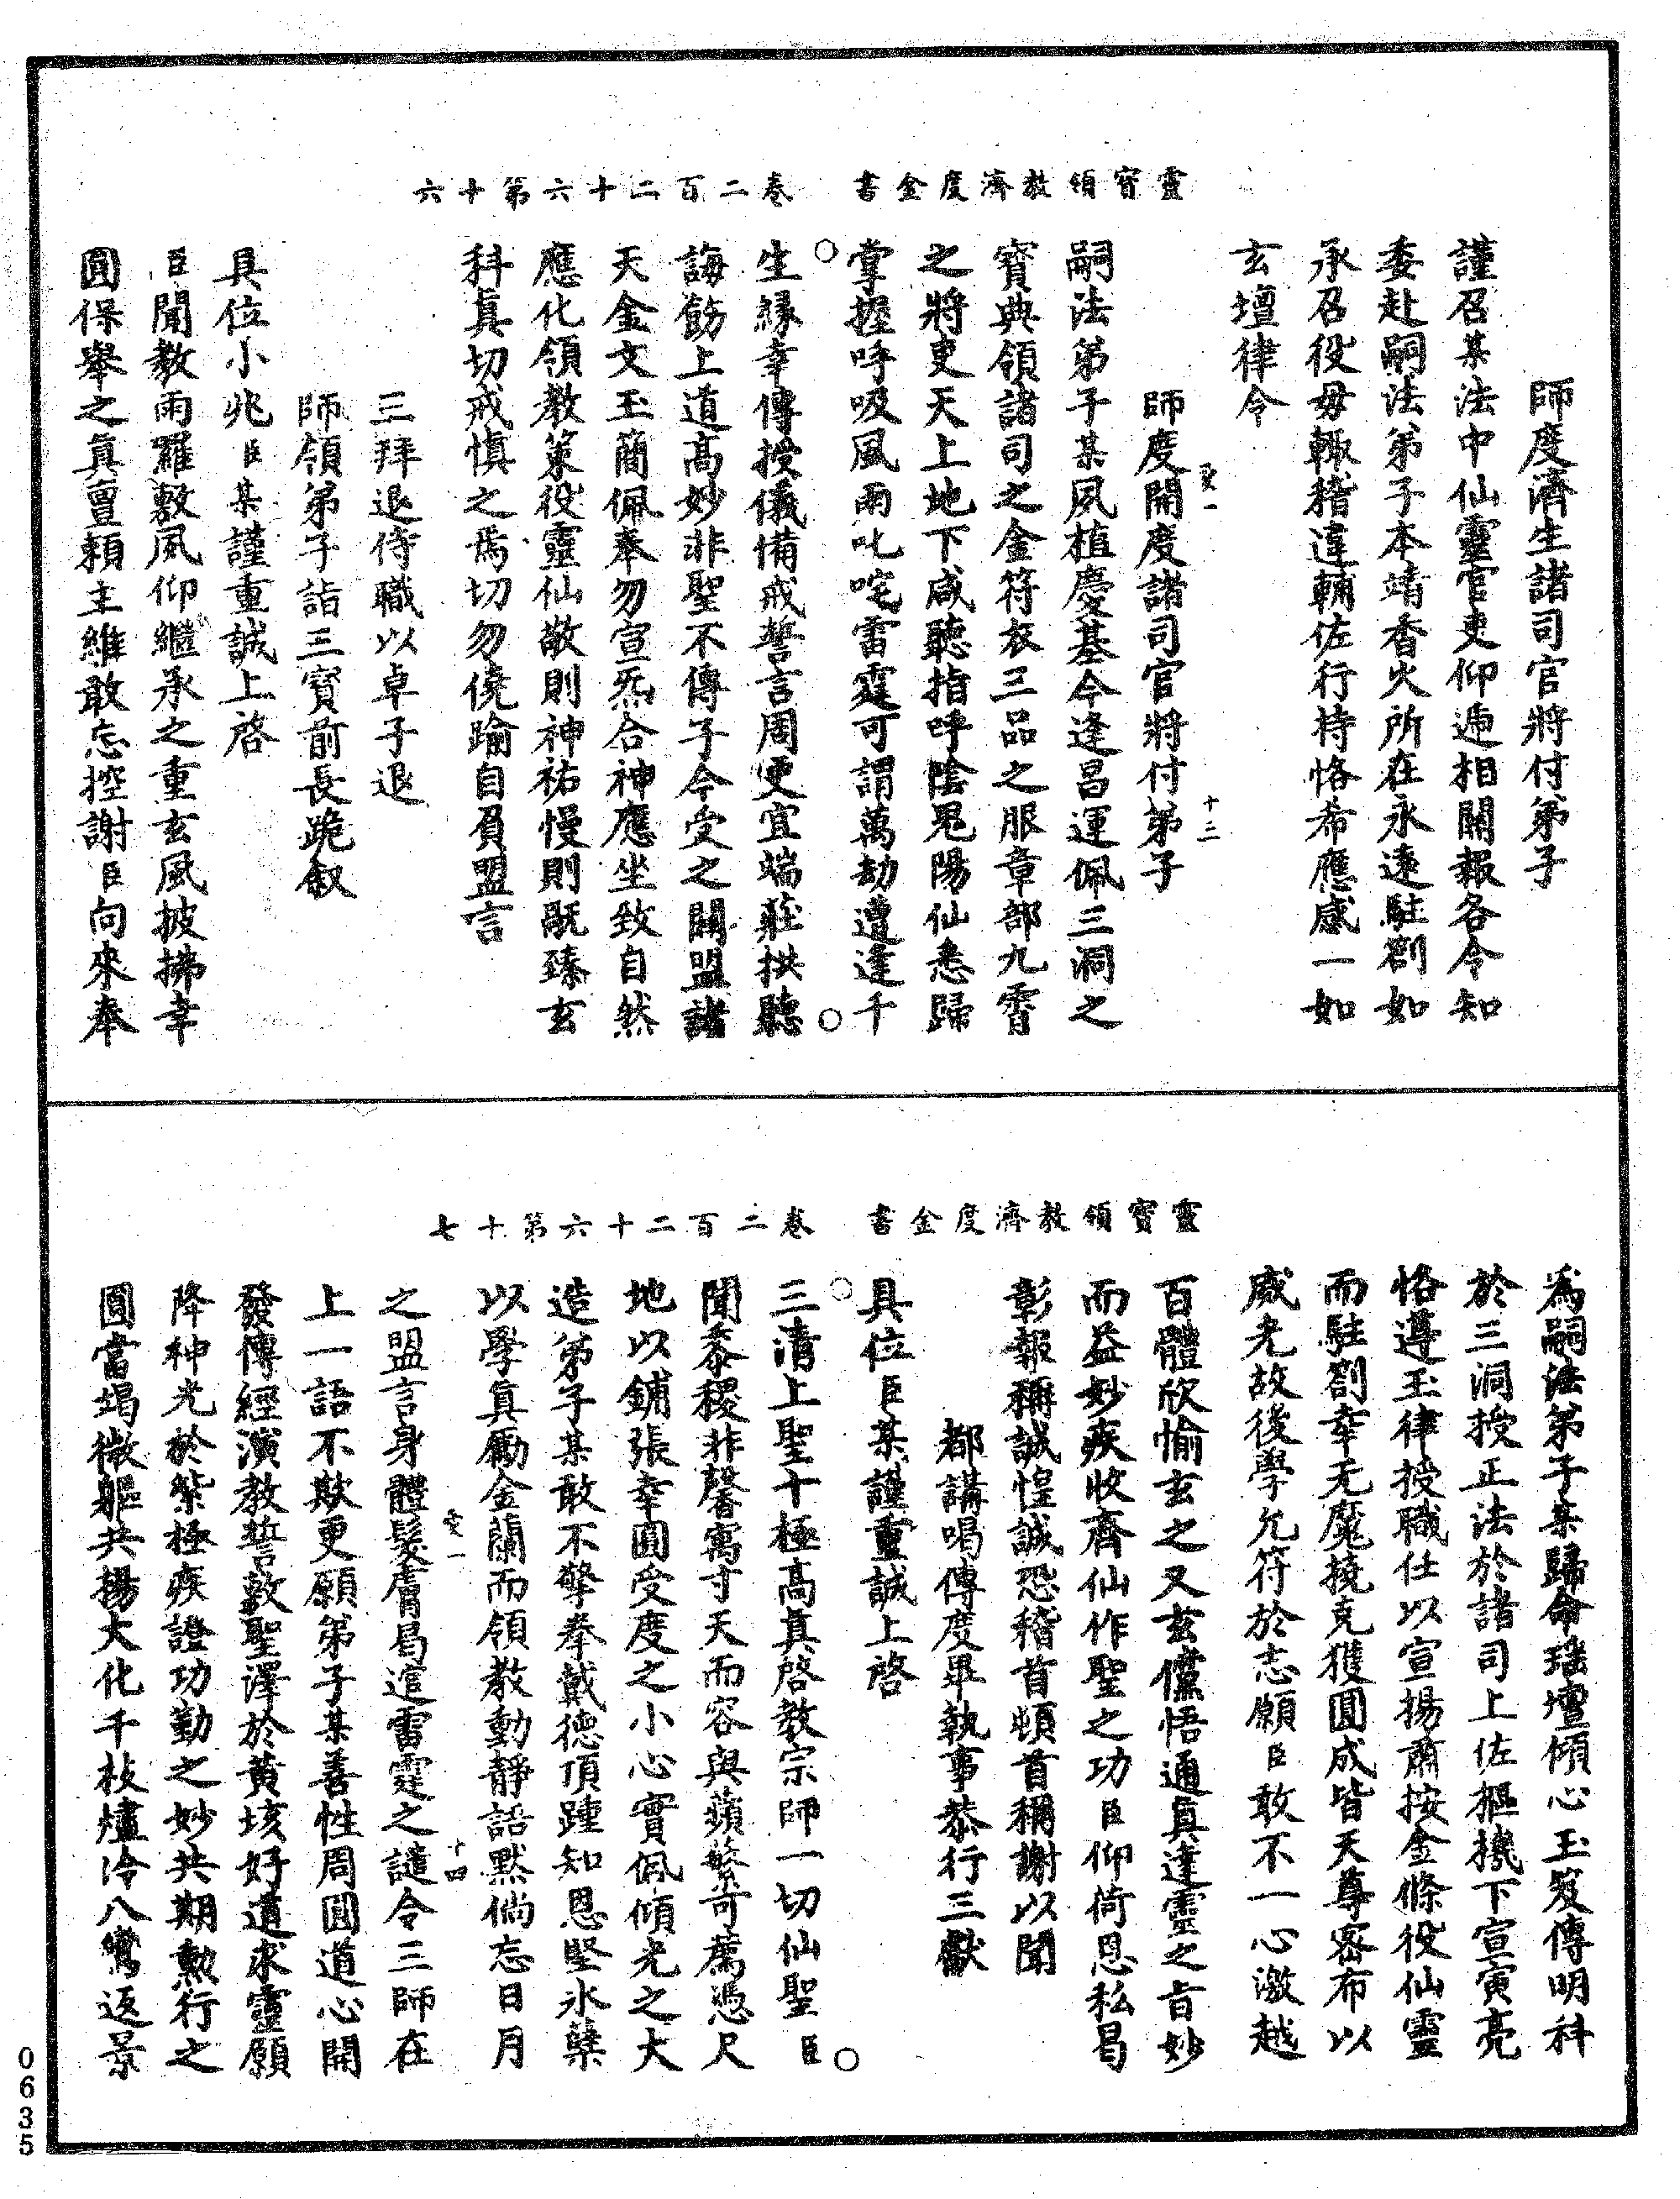 靈寶領教濟度金書　卷二百二十六第十六
師度濟生諸司官將付弟子
謹召某法中仙靈官吏仰遞相關報各令知
委赴嗣法弟子本靖香火所在永遠駐劄如
承召役毋輒稽違輔佐行持恪希應感一如
玄壇律令
十三
師度開度諸司官將付弟子
嗣法弟子某夙植慶基今逢昌運佩三洞之
寳典領諸司之金符衣三品之服章部九霄
之將吏天上地下咸聽指呼陰鬼陽仙悉歸
掌握呼吸風雨叱咤雷霆可謂萬劫遭逢千
生緣幸傳授儀備戒誓言周更宜端莊拱聽
誨飭上道高妙非聖不傳子今受之關盟諸
天金文玉簡佩奉勿宣炁合神應坐致自然
應化領教策役靈仙敬則神祐慢則厭臻玄
科真切戒慎之焉切勿僥踰自負盟言
三拜退侍職以卓子退
師領弟子詣三寳前長跪叙
具位小兆臣某謹重誠上啓
臣聞教雨羅敷風仰繼承之重玄風披拂幸
圓保舉之真亶賴主維敢忘控謝臣向來奉
靈寶領教濟度金書　卷二百二十六第十七
為嗣法弟子某歸命瑤壇傾心玉笈傳明科
於三洞授正法於諸司上佐樞機下宣寅亮
恪遵玉律授職任以宣揚肅按金條役仙靈
而駐劄幸无魔撓克獲圓成皆天尊密布以
威光故後學允符於志願臣敢不一心激越
百體欣愉玄之又玄儻悟通真達靈之旨妙
而益妙疾收齊仙作聖之功臣仰荷恩私曷
彰報稱誠惶誠恐稽首頓首稱謝以聞
都講喝傳度畢執事恭行三獻
具位臣某謹重誠上啓
三清上聖十極高真啓教宗師一切仙聖臣
聞黍稷非馨寓寸天而容與蘋蘩可薦憑尺
地以鋪張幸圓受度之小心實佩傾光之大
造弟子某敢不擎拳戴德頂踵知恩堅冰櫱
以學真勵金蘭而領教動靜語默倘忘日月
十四
之盟言身體髮膚曷逭雷霆之譴令三師在
上一語不欺更願弟子某善性周圓道心開
發傳經演教誓敷聖澤於黃垓好道求靈願
降神光於紫極疾證功勤之妙共期勲行之
圓當竭微軀共揚大化千枝燼冷八鸞返景
0635